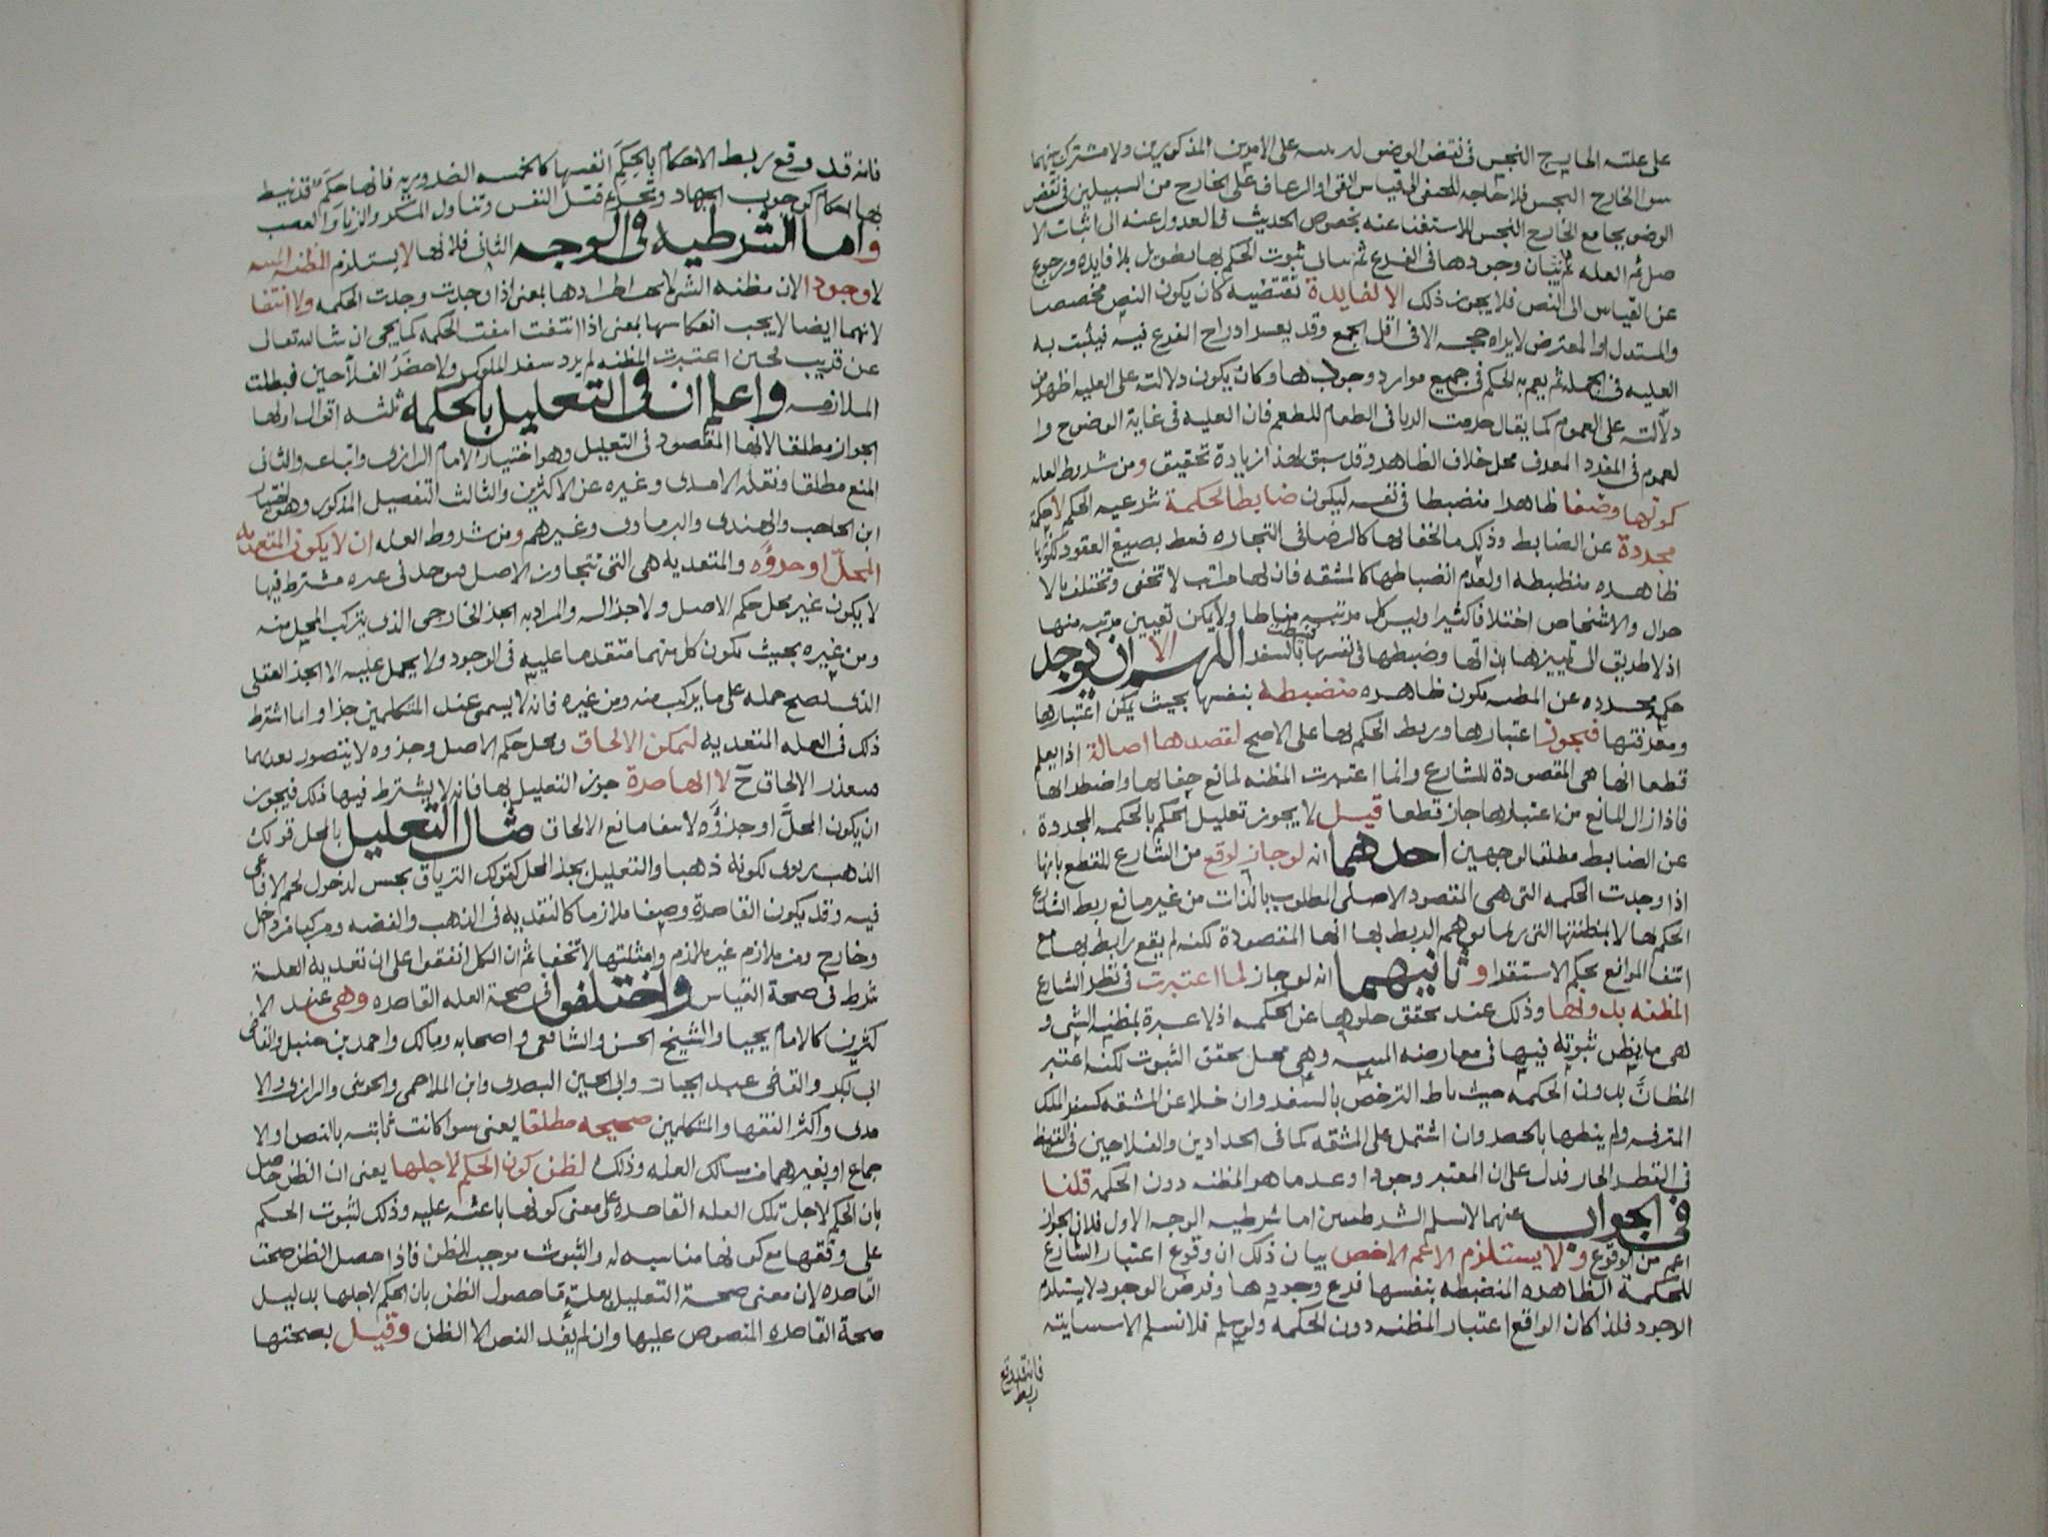 على علته الخارج النجس فى نقض الوضو على الامرين المذكورين ولا مشترك بينهما
الخارج النجس فلا حاجه للحنفى الى قياس القى او الرعاف على الخارج من السبيلين فى نقض
الوضو بجامع الخارج النجس للاستغنا عنه بخصوص الحديث فالعدول عنه الى اثبات الا
صل ثم العله ثم بيان وجودها فى الفرع ثم بيان ثبوت الحكم بها تطويل بلا فايده ورجوع
عن القياس الى النص فلا يجوز ذلك الا لفايدة تقتضيه كان يكون النص مخصصا
والمستدل او المعترض لا يراه حجه الا فى اقل الجمع وقد يعسر ادراج الفرع فيه فيثبت به
العليه فى الجمله ثم يعم به الحكم فى جميع موارد وجودها وكان يكون دلالته على العليه اظهر من
دلالته على العموم كما يقال حرمت الربا فى الطعام للطعم فان العليه فى غاية الوضوح وا
لعموم فى المفرد المعرف محل خلاف الظاهر وقد سبق لهذا زيادة تحقيق ومن شروط العله
كونها وصفا ظاهرا منضبطا فى نفسه ليكون ضابطا لحكمة شرعيه الحكم لا حكمة
مجردة عن الضابط وذلك اما لخفائها كالرضا فى التجاره فنط بصيغ العقود لكونها
ظاهره منضبطه او لعدم انضباطها كالمشقه فان لها مراتب لا تحصى وتختلف بالا
حوال والاشخاص اختلافا كثيرا وليس كل مرتبه مناطا ولا يمكن تعيين مرتبه منها
اذ لا طريق الى تمييزها بذاتها وضبطها فى نفسها فنيطت بالسفر اللهم الا ان يوجد
حكمة مجرده عن المظنه تكون ظاهره منضبطه بنفسها بحيث يمكن اعتبارها
ومعرفتها فيجوز اعتبارها وربط الحكم بها على الاصح لقصدها اصالة اذا يعلم
قطعا انها هى المقصودة للشارع وانما اعتبرت المظنه لمانع خفائها واضطرابها
فاذا زال المانع من اعتبارها جاز قطعا قيل لا يجوز تعليل الحكم بالحكمه المجردة
عن الضابط مطلقا لوجهين احدهما انه لو جاز لوقع من الشارع للقطع بانها
اذا وجدت الحكمه التى هى المقصود الاصلى المطلوب بالذات من غير مانع ربط الشارع
الحكم بها لا بمظنتها التى ربما يوهم الربط بها انها المقصودة لكنه لم يقع رابط بها مع
انتفا الموانع بحكم الاستقرا وثانيهما انه لو جاز لما اعتبرت فى نظر الشارع
المظنه بدونها وذلك عند تحقق خلوها عن الحكمه اذ لا عبرة بمظنه الشى و
هى ما يظن ثبوته فيها فى معارضه المينه وهى محل تحقق الثبوت لكنه اعتبر
المظان بدون الحكمه حيث ناط الترخص بالسفر وان خلا عن المشقه كسفر الملك
المترفه ولم ينطها بالحضر وان اشتمل على المشقه كما فى الحدادين والفلاحين فى القيظ
فى القطر الحار فدل على ان المعتبر وجودا وعدما هو المظنه دون الحكمه قلنا
فى الجواب عنهما لا نسلم الشرطيتين اما شرطيه الوجه الاول فلان الجواز
اعم من الوقوع ولا يستلزم الاعم الاخص بيان ذلك ان وقوع اعتبار الشارع
للحكمة الظاهره المنضبطه بنفسها فرع وجودها وفرض الوجود لا يستلزم
الوجود فلذا كان الواقع اعتبار المظنه دون الحكمه ولو سلم فلا نسلم الاستثنائيه
فانه قد وقع
ربط
فانه قد وقع ربط الاحكام بالحكم انفسها كالخمسه الضروريه فانها حكم قد نيط
بها احكام كوجوب الجهاد وتحريم قتل النفس وتناول المسكر والزنا والغصب
واما الشرطيه فى الوجه الثانى فلانها لا يستلزم المظنه المينه
لا وجودا لان مظنه الشى لا يجب اطرادها بمعنى اذا وجدت وجدت الحكمه ولا انتفا
لانها ايضا لا يجب انعكاسها بمعنى اذا انتفت انتفت الحكمه كما يجى ان شا الله تعالى
عن قريب فحين اعتبرت المظنه لم يرد سفر الملوك ولا حضر الفلاحين فبطلت
الملازمه واعلم ان فى التعليل بالحكمه ثلثه اقوال اولها
الجواز مطلقا لانها المقصود فى التعليل وهو اختيار الامام الرازى واتباعه والثانى
المنع مطلقا ونقله الامدى وغيره عن الاكثرين والثالث التفصيل المذكور وهو اختيار
ابن الحاجب والهندى والبرماوى وغيرهم ومن شروط العله ان لا يكون المتعديه
المحل او جزؤه والمتعديه هى التى تتجاوز الاصل فتوجد فى غيره مشترط فيها
لا يكون غير محل حكم الاصل ولا جزا له والمراد به الجز الخارجى الذى يتركب المحل منه
ومن غيره بحيث يكون كل منهما متقدما عليه فى الوجود ولا يحمل عليه الا الجز العقلى
الذى يصح حمله على ما يركب منه ومن غيره فانه لا يسمى عند المتكلمين جزا وانما اشترط
ذلك فى العله المتعديه ليمكن الالحاق ومحل حكم الاصل وجزوه لا يتصور تعديهما
فيتعذر الالحاق ح لا القاصرة جوز التعليل بها فانه لا يشترط فيها ذلك فيجوز
ان يكون المحل او جزؤه لانتفا مانع الالحاق مثال التعليل بالمحل قولك
الذهب ربوى لكونه ذهبا والتعليل بجز المحل كقولك الترياق نجس لدخول لحم الافاعى
فيه وقد يكون القاصرة وصفا ملازما كالنقديه فى الذهب والفضه ومركبا من داخل
وخارج ومن ملازم غير ملازم وامثلتها لا تخفى ثم ان الكل اتفقوا على ان تعديه العلة
شرط فى صحة القياس واختلفوا فى صحة العله القاصره وهى عند الا
كثرين كالامام يحيى والشيخ الحسن والشافعى واصحابه ومالك واحمد بن حنبل والقاضى
ابى بكر والقاضى عبد الجبار وابى الحسين البصرى وابن الملاحمى والجوينى والرازى والا
مدى واكثر الفقها والمتكلمين صحيحه مطلقا يعنى سوا كانت ثابته بالنص او الا
جماع او بغيرهما من مسالك العله وذلك لظن كون الحكم لاجلها يعنى ان الظن حاصل
بان الحكم لاجل تلك العله القاصره على معنى كونها باعثه عليه وذلك لثبوت الحكم
على وفقها مع كونها مناسبه له والثبوت موجب للظن فاذا حصل الظن صحت
القاصره لان معنى صحة التعليل بعلة ما حصول الظن بان الحكم لاجلها بدليل
صحة القاصره المنصوص عليها وان لم يفد النص الا الظن وقيل بصحتها